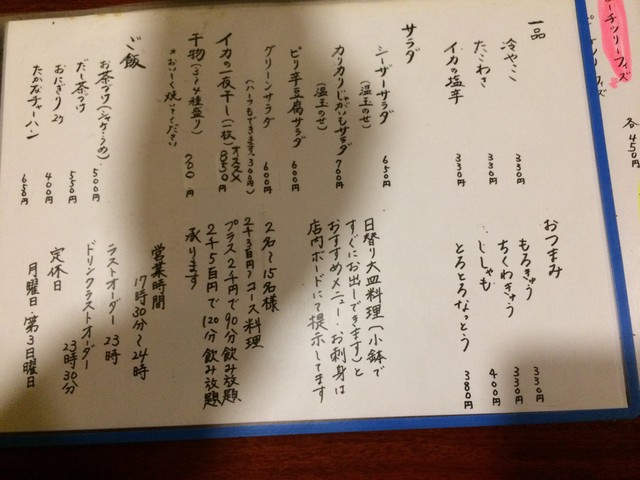 ーチツリーフィズ
各450円
一品
冷やっこ 330円
たこわさ 330円
イカの塩辛 330円
サラダ
シーザーサラダ 650円
(温玉のせ)
カリカリじゃがいもサラダ 700円
(温玉のせ)
ピリ辛豆腐サラダ 600円
グリーンサラダ 600円
(ハーフもできます。300円)
イカの一夜干し(一枚) オススメ 850円
干物(3〜4種盛り) 700円
*おいしく焼いてください
ご飯
お茶づけ(シャケ・うめ) 500円
だし茶づけ 550円
おにぎり2ケ 400円
たかなチャーハン 650円
おつまみ
もろきゅう 330円
ちくわきゅう 330円
ししゃも 400円
とろとろなっとう 380円
日替り大皿料理(小鉢で
すぐにお出しできます)と
おすすめメニュー・お刺身は
店内ボードにて提示してます
2名〜15名様
2千3百円〜コース料理
プラス2千円で90分飲み放題
2千5百円で120分飲み放題
承ります
営業時間
17時30分〜24時
ラストオーダー 23時
ドリンクラストオーダー
23時30分
定休日
月曜日・第3日曜日